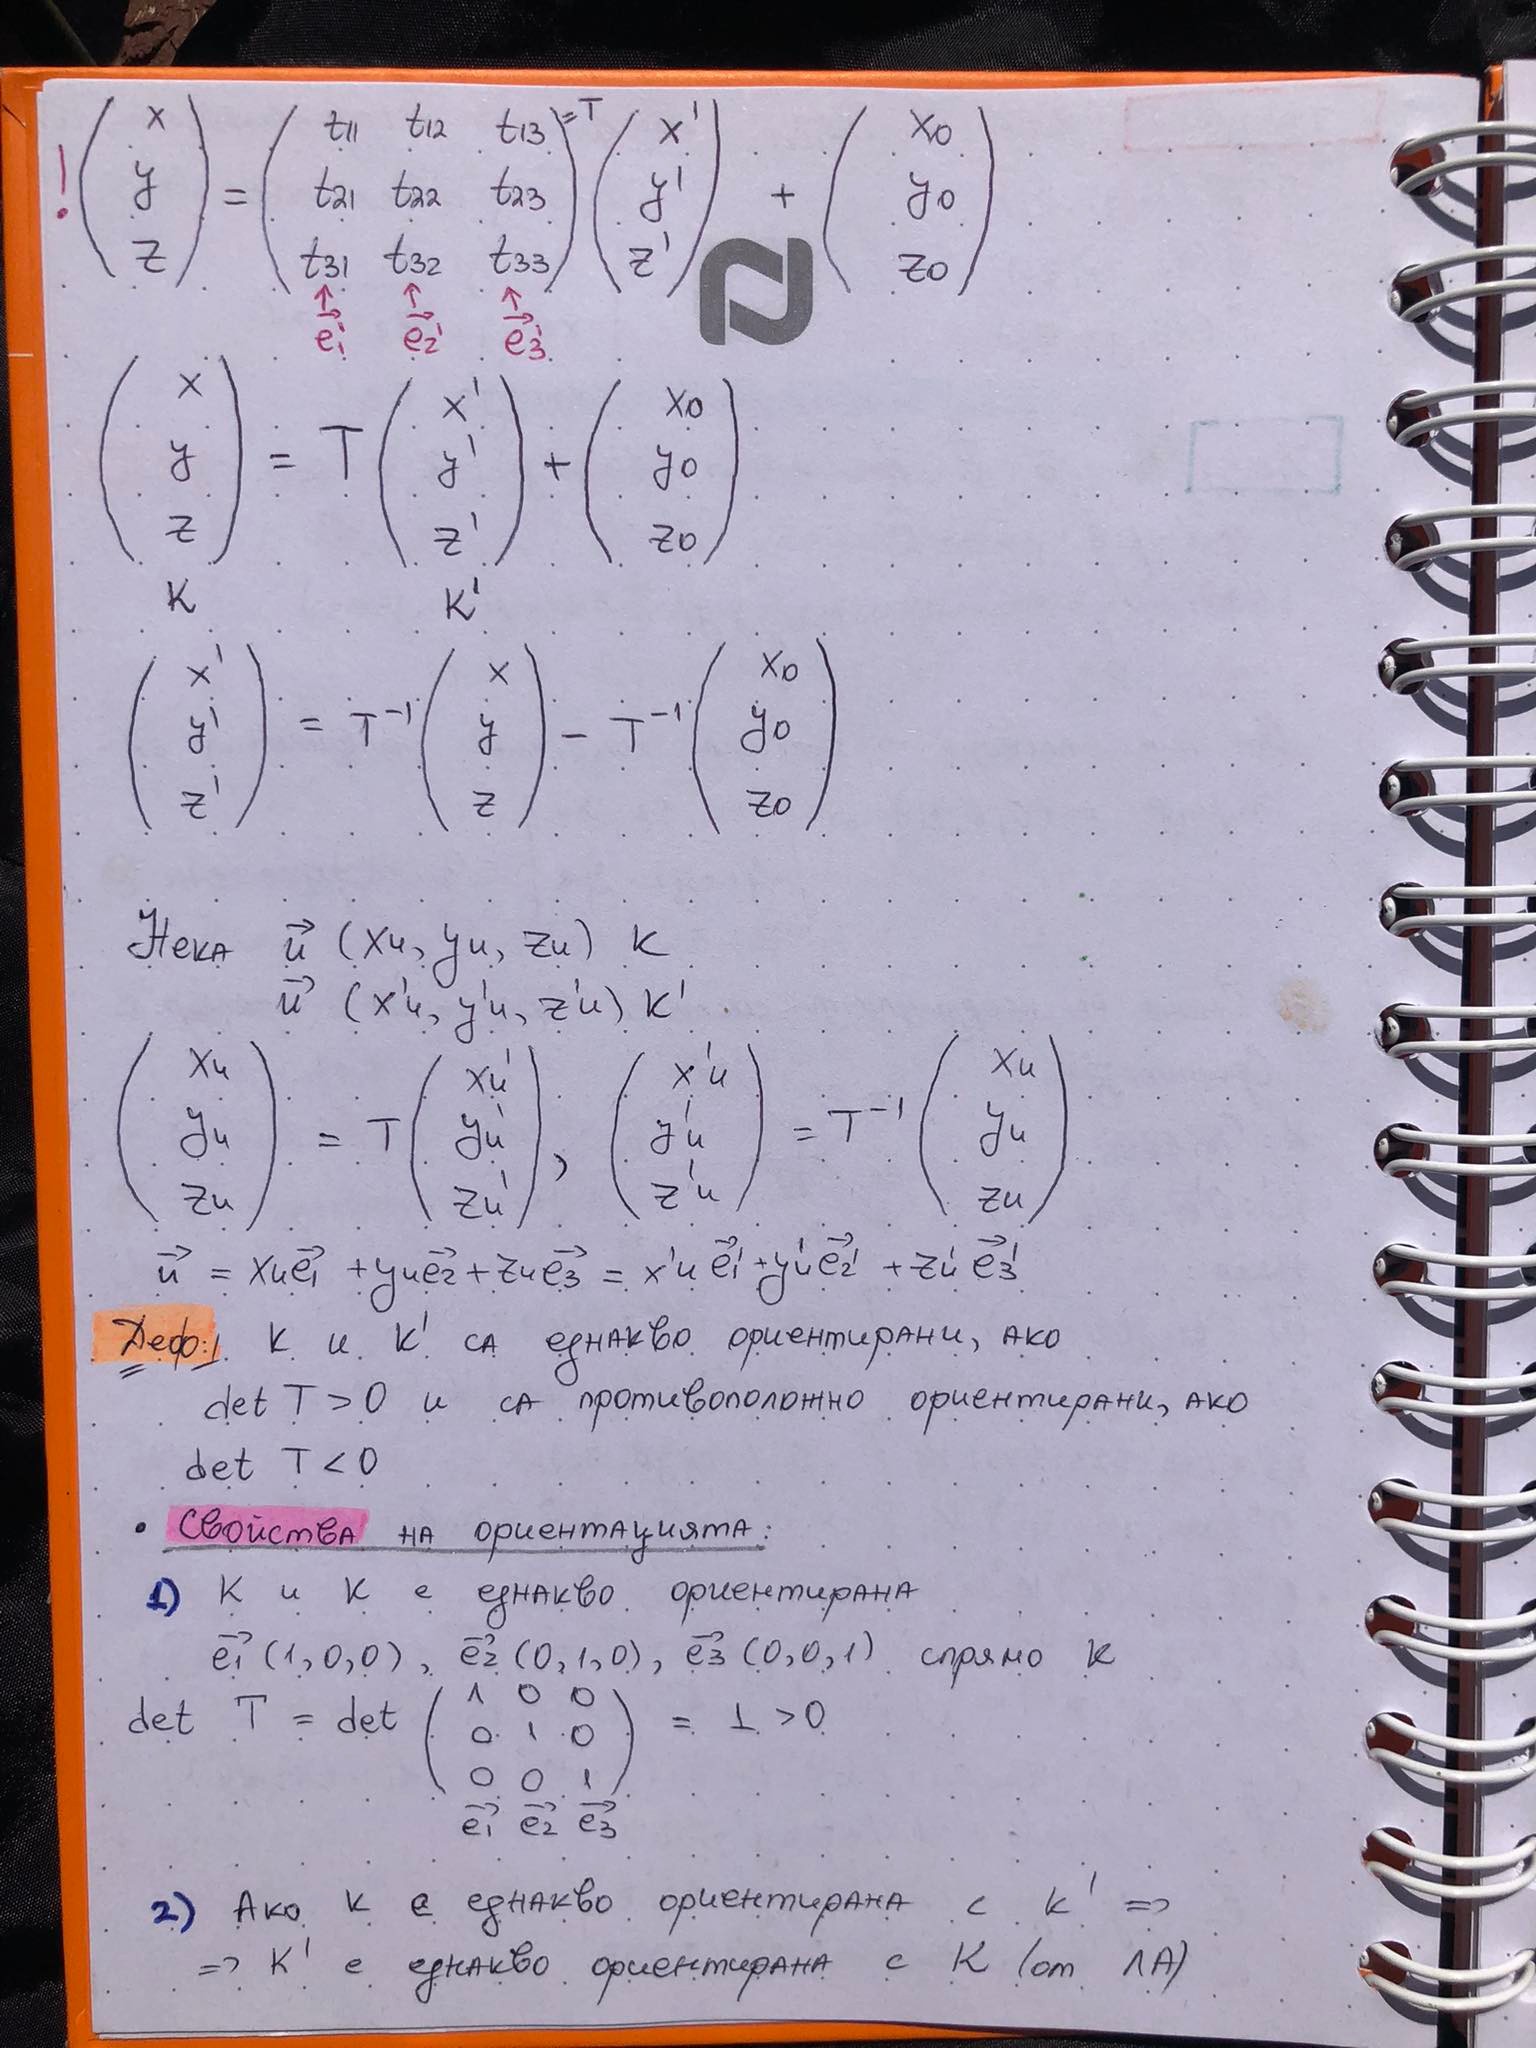 ! (x y z) = (t11 t12 t13 t21 t22 t23 t31 t32 t33) =T (x' y' z') + (x0 y0 z0)
↑ ↑ ↑
e⃗1' e⃗2' e⃗3'
(x y z) = T (x' y' z') + (x0 y0 z0)
K K'
(x' y' z') = T⁻¹ (x y z) − T⁻¹ (x0 y0 z0)
Нека u⃗ (xu, yu, zu) K
u⃗ (x'u, y'u, z'u) K'
(xu yu zu) = T (xu' yu' zu'), (x'u y'u z'u) = T⁻¹ (xu yu zu)
u⃗ = xue⃗1 + yue⃗2 + zue⃗3 = x'u e⃗1' + y'u e⃗2' + zu' e⃗3'
Деф:/ K и K' са еднакво ориентирани, ако
det T > 0 и са противоположно ориентирани, ако
det T < 0
• Свойства на ориентацията:
1) K и K е еднакво ориентирана
e⃗1 (1,0,0), e⃗2 (0,1,0), e⃗3 (0,0,1) спрямо K
det T = det (1 0 0 0 1 0 0 0 1) = 1 > 0
e⃗1 e⃗2 e⃗3
2) Ако K е еднакво ориентирана с K' =>
=> K' е еднакво ориентирана с K (от ЛА)